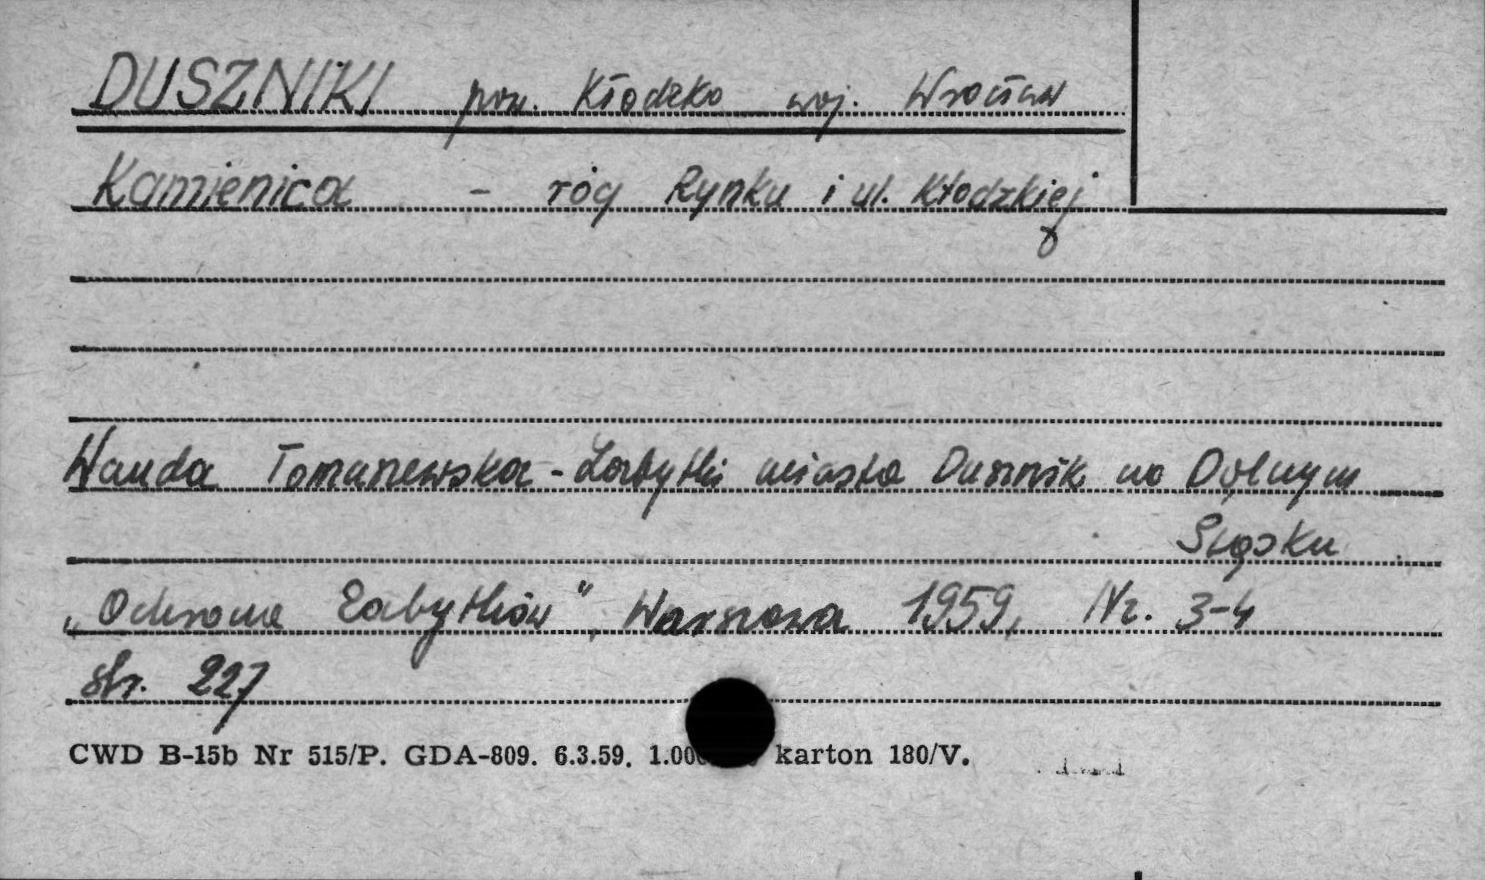 DUSZNIKI pow. Kłodzko woj. Wrocław
Kamienica - róg Rynku i ul. Kłodzkiej
Wanda Tomanewska - Zabytki miasta Dusznik na Dolnym
Śląsku
„Ochrona Zabytków", Warszawa 1959, Nr. 3-4
str. 227
CWD B-15b Nr 515/P. GDA-809. 6.3.59. karton 180/V.